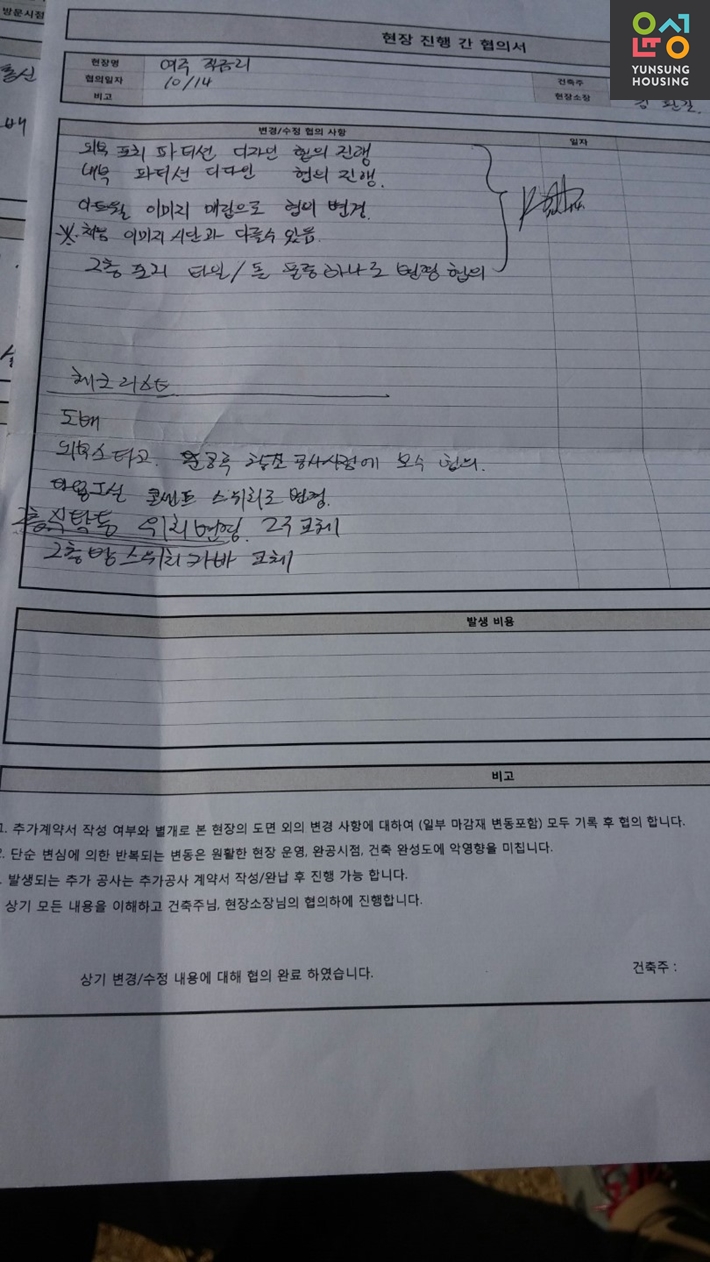 방문시점
현장 진행 간 협의서
윤성
YUNSUNG
HOUSING
현장명 여주
협의일자 10/14
건축주
비고
현장소장
변경/수정 협의 사항
일자
외부 포치 파티션 디자인 협의 진행
내부 파티션 디자인 협의 진행.
아트월 이미지 매립으로 협의 변경.
※. 이미지 시안과 다를수 있음.
2층 포치 타일/돌 둘중하나로 변경 협의
체크리스트
도배
외부스타코. 공사시점에 보수 협의.
콘센트 스위치로 변경.
2층식탁등 위치변경. 2구 교체
2층방스위치카바 교체
발생 비용
비고
1. 추가계약서 작성 여부와 별개로 본 현장의 도면 외의 변경 사항에 대하여 (일부 마감재 변동포함) 모두 기록 후 협의 합니다.
2. 단순 변심에 의한 반복되는 변동은 원활한 현장 운영, 완공시점, 건축 완성도에 악영향을 미칩니다.
발생되는 추가 공사는 추가공사 계약서 작성/완납 후 진행 가능 합니다.
상기 모든 내용을 이해하고 건축주님, 현장소장님의 협의하에 진행합니다.
상기 변경/수정 내용에 대해 협의 완료 하였습니다.
건축주 :